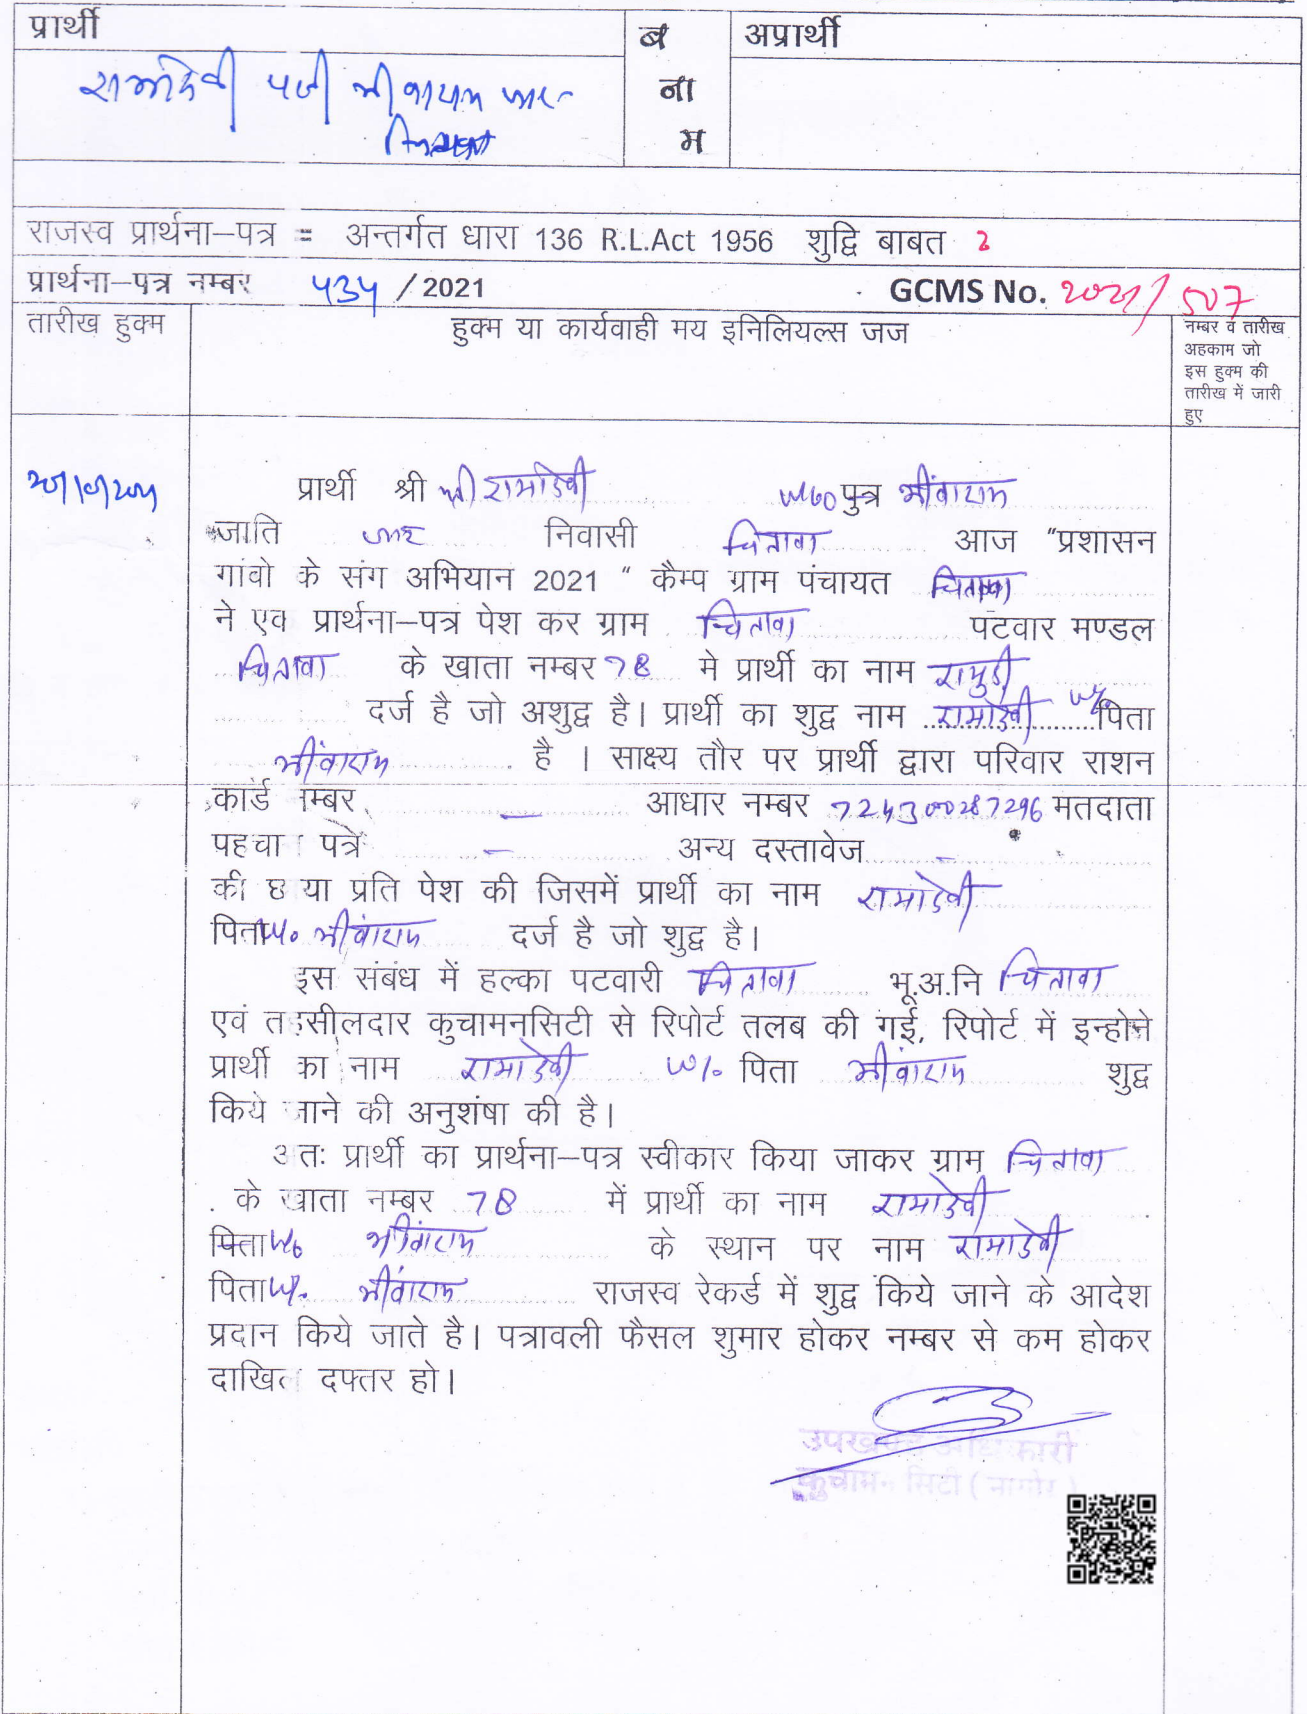 प्रार्थी
ब
ना
म
अप्रार्थी
रामादेवी पत्नी भींवाराम जाट
राजस्व प्रार्थना–पत्र = अन्तर्गत धारा 136 R.L.Act 1956 शुद्वि बाबत
प्रार्थना–पत्र नम्बर ५३५ / 2021 GCMS No. 2021/507
तारीख हुक्म
हुक्म या कार्यवाही मय इनिलियल्स जज
नम्बर व तारीख
अहकाम जो
इस हुक्म की
तारीख में जारी
हुए
प्रार्थी श्री रामादेवी w/o पुत्र भींवाराम
जाति जाट निवासी चितावा आज "प्रशासन
गांवो के संग अभियान 2021 " कैम्प ग्राम पंचायत चितावा
ने एव प्रार्थना–पत्र पेश कर ग्राम चितावा पटवार मण्डल
चितावा के खाता नम्बर 78 मे प्रार्थी का नाम रामुडी
दर्ज है जो अशुद्व है। प्रार्थी का शुद्व नाम रामादेवी w/o पिता
भींवाराम है । साक्ष्य तौर पर प्रार्थी द्वारा परिवार राशन
कार्ड नम्बर – आधार नम्बर 724300287296 मतदाता
पहचा पत्र – अन्य दस्तावेज –
की छाया प्रति पेश की जिसमें प्रार्थी का नाम रामादेवी
पिता w/o भींवाराम दर्ज है जो शुद्व है।
इस संबंध में हल्का पटवारी चितावा भू.अ.नि चितावा
एवं तहसीलदार कुचामनसिटी से रिपोर्ट तलब की गई, रिपोर्ट में इन्होने
प्रार्थी का नाम रामादेवी w/o पिता भींवाराम शुद्व
किये जाने की अनुशंषा की है।
अतः प्रार्थी का प्रार्थना–पत्र स्वीकार किया जाकर ग्राम चितावा
के खाता नम्बर 78 में प्रार्थी का नाम रामादेवी
पिता w/o भींवाराम के स्थान पर नाम रामादेवी
पिता w/o भींवाराम राजस्व रेकर्ड में शुद्व किये जाने के आदेश
प्रदान किये जाते है। पत्रावली फैसल शुमार होकर नम्बर से कम होकर
दाखिल दफ्तर हो।
उपखण्ड अधिकारी
कुचामन सिटी ( नागौर )